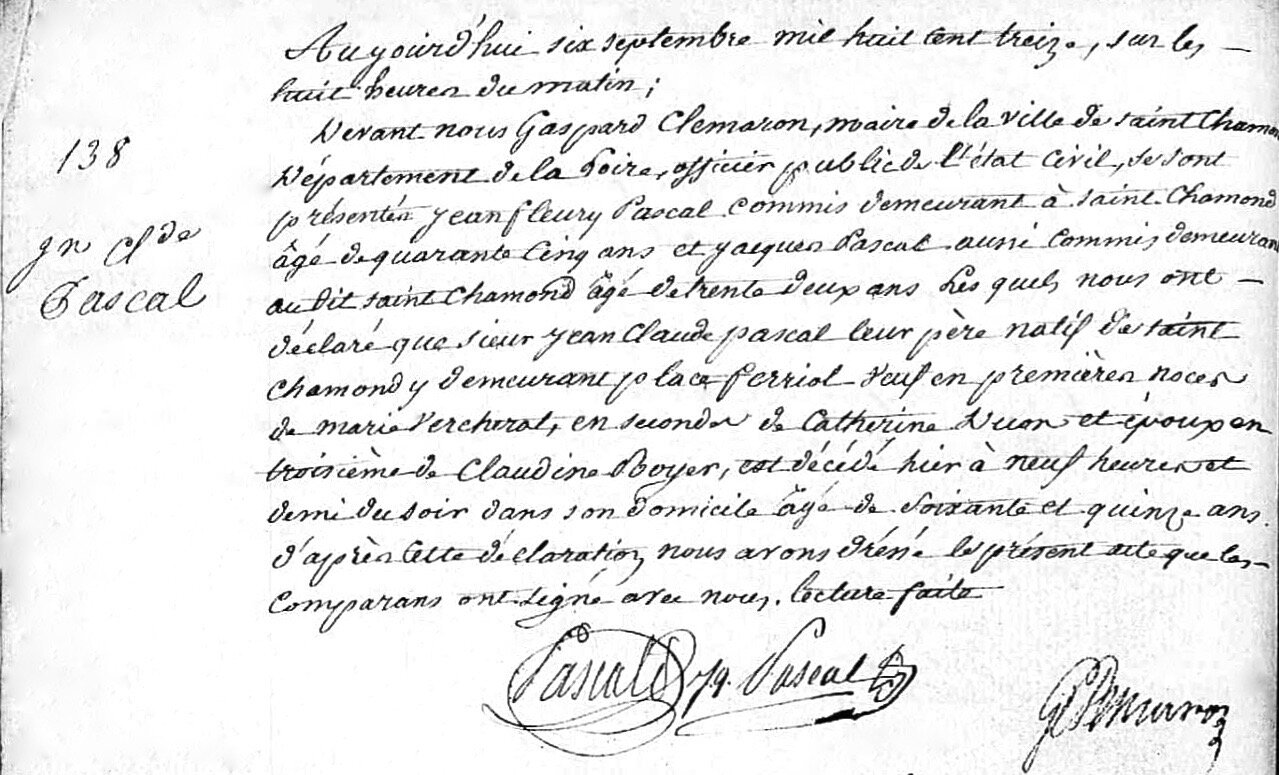 138
jn Clde
Pascal
Aujourd'hui six septembre mil huit cent treize, sur les
huit heures du matin;
Devant nous Gaspard Clemaron, maire de la ville de saint Chamon
Département de la Loire, officier public de l'état civil, se sont
présentés jean fleury Pascal commis demeurant à saint Chamond
âgé de quarante cinq ans et jacques Pascal aussi commis demeurant
au dit saint Chamond âgé de trente deux ans Les quels nous ont
déclaré que sieur jean Claude pascal leur père natif de saint
chamond y demeurant place ferriol Veuf en premières noces
de marie Vercherat, en secondes de Catherine et époux en
troisième de Claudine Boyer, est décédé hier à neuf heures et
demi du soir dans son domicile âgé de soixante et quinze ans.
d'après cette déclaration nous avons dréssé le présent acte que les
comparans ont signé avec nous. lecture faite
Pascal jq. Pascal